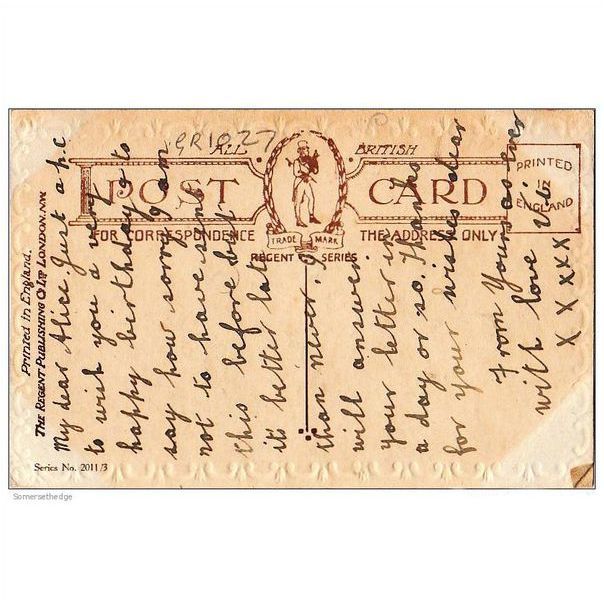 GR1027
ALL BRITISH
POST CARD
PRINTED
IN
ENGLAND
FOR CORRESPONDENCE
THE ADDRESS ONLY
TRADE MARK
REGENT SERIES
Printed in England.
THE REGENT PUBLISHING Co LTD LONDON. N.W.
Series No. 2011/3
My dear Alice Just a p.c
to wish you a very
happy birthday & to
say how sorry I am
not to have sent
this before but
it's better late
than never. I
will answer
your letter in
a day or so. Thanks
for your wishes dear
From Yours as ever
with love Vi
X X X X X
Somersethedge